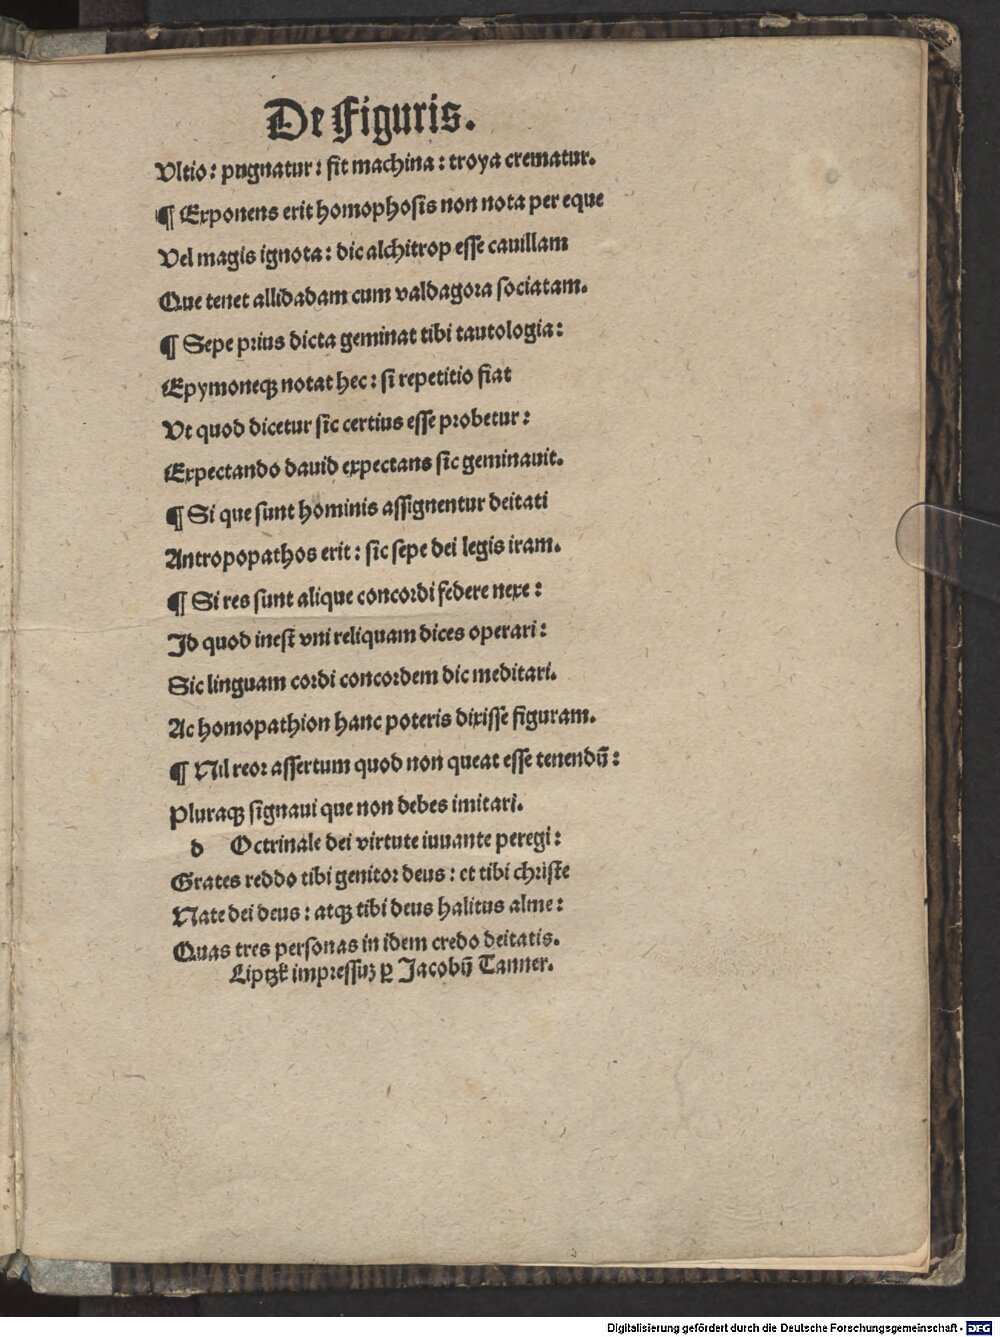 De Figuris.
Vltio: pugnatur: fit machina: troya crematur.
¶ Exponens erit homophosis non nota per eque
Vel magis ignota: dic alchitrop esse cauillam
Que tenet allidadam cum valdagora sociatam.
¶ Sepe prius dicta geminat tibi tautologia:
Epymoneqꝫ notat hec: si repetitio fiat
Vt quod dicetur sic certius esse probetur:
Expectando dauid expectans sic geminauit.
¶ Si que sunt hominis assignentur deitati
Antropopathos erit: sic sepe dei legis iram.
¶ Si res sunt alique concordi federe nexe:
Id quod inest vni reliquam dices operari:
Sic linguam cordi concordem dic meditari.
Ac homopathion hanc poteris dixisse figuram.
¶ Nil reor assertum quod non queat esse tenendū:
Pluraqꝫ signaui que non debes imitari.
d Octrinale dei virtute iuuante peregi:
Grates reddo tibi genitor deus: et tibi christe
Nate dei deus: atqꝫ tibi deus halitus alme:
Quas tres personas in idem credo deitatis.
Liptzk impressuꝫ ꝑ Jacobū Tanner.
Digitalisierung gefördert durch die Deutsche Forschungsgemeinschaft - DFG